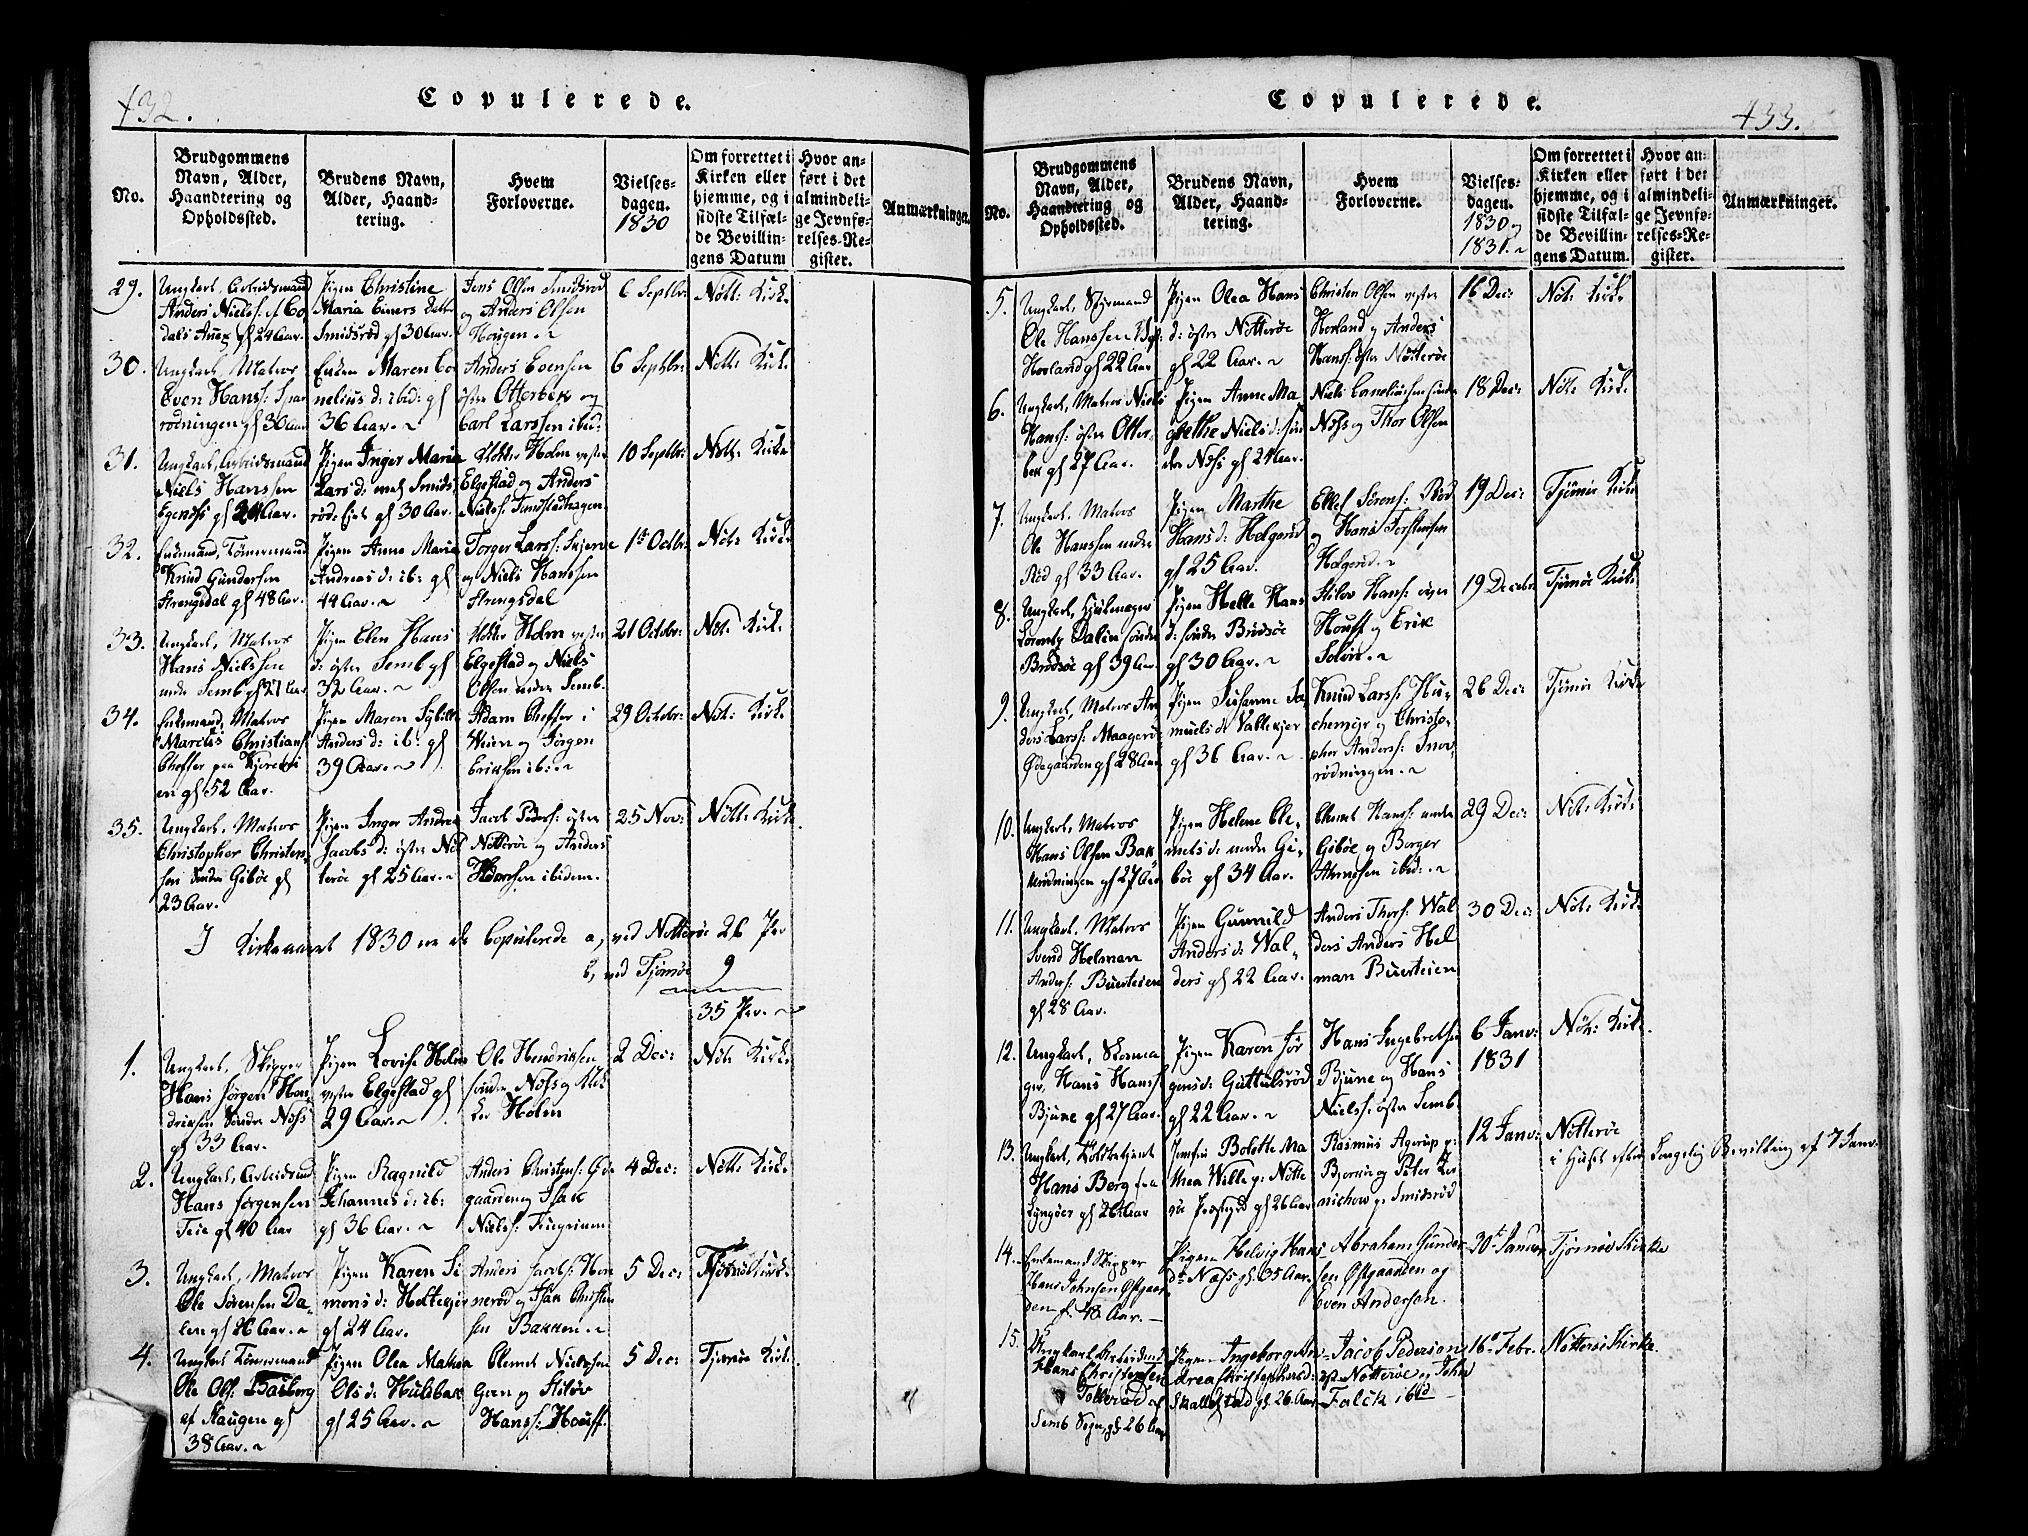 432.
Copulerede.
No.
Brudgommens
Navn, Alder,
Haandtering og
Opholdssted.
Brudens Navn,
Alder, Haand-
tering.
Hvem
Forloverne.
Vielses-
dagen.
1830
Om forrettet i
Kirken eller
hjemme, og i
sidste Tilfæl-
de Bevillin-
gens Datum
Hvor an-
ført i det
almindeli-
ge Jevnfø-
relses-Re-
gister.
Anmærkninger.
29.
Ungkarl, Arbeidsmand
Anders Niels: af
Anex gl 24 Aar.
Pigen Christine
Maria Einers datter
Smidsrød gl 30 Aar.
Jens Olsen Smidsrød
og Anders Olsen
Haugen
6 Septbr:
Nött: Kirke
30.
Ungkarl, Matros
Even Hans:
rødningen gl 30 Aar
Enken Maren Co
nelius d: ibid: gl
36 Aar.
Anders Evensen
öster Otterbek og
Carl Larssen ibid:
6 Septbr:
Nött: Kirke
31.
Ungkarl, Arbeidsmand
Niels Hanssen
gl 24 Aar.
Pigen Inger Maria
Lars d: Smids
rød: Eie gl 30 Aar.
Holm vester
Elgestad og Anders
Niels:
10 Septbr:
Nött: Kirke
32.
Enkemand, Tömmermand
Knud Gundersen
Strengsdal gl 48 Aar.
Pigen Anne Maria
Andreas d: ib: gl
44 Aar.
Torger Lars:
og Niels Hanssen
Strengsdal
1ste Octbr:
Nöt: Kirke
33.
Ungkarl, Matros
Hans Nielssen
nedre Semb gl 27 Aar
Pigen Elen Hans
d: öster Semb gl
32 Aar.
Holm vester
Elgestad og Niels
Olsen nedre Semb.
21 Octobr:
Nöt: Kirke
34.
Enkemand, Matros
Christians:
gl 52 Aar.
Pigen Maren Sybille
Anders d: ib: gl
39 Aar.
Adam i
og Jörgen
Eriksen ib:
29 Octobr:
Nöt: Kirke
35.
Ungkarl, Matros
Christopher Christen-
sen Gibøe gl
23 Aar.
Pigen Inger Andrea
Jacobs d: öster Nöt
teröe gl 25 Aar.
Jacob Peders: öster
Nötteröe og Anders
ibidem.
25 Nov:
Nött: Kirke
I Kirkeaaret 1830 ere de Copulerede a, ved Nötteröe 26 Par
b, ved Tjömöe 9
35 Par.
1.
Ungkarl, Skipper
Hans Jörgen Hen
driksen Söndre Nöss
gl 33 Aar.
Pigen Lovise Holm
vester Elgestad gl
29 Aar.
Ole Hendriksen
söndre Nöss og
Holm
2 Dec:
Nöt: Kirke
2.
Ungkarl, Arbeidsmd
Hans Jörgensen
Teie gl 40 Aar
Pigen Ragnild
Johannes d: ib:
gl 36 Aar.
Anders Christens: Øde
gaarden og Isak
Niels:
4 Dec:
Nött: Kirke
3.
Ungkarl, Matros
Ole Sörensen Da-
len gl 26 Aar.
Pigen Karen Si
mons d: Holtekjer
gl 24 Aar.
Anders Jacobs: Hon
nerød og Isak Christen
sen Bakken.
5 Dec:
Tjömöe Kirke
4.
Ungkarl Tömmermand
Ole Ols:
af Haugen gl
38 Aar.
Pigen Olea Mathea
Ols d: Hulebak
gl 25 Aar.
Clemet Nielssen
Göen og Stilov
Hanss: Houff.
5 Dec:
Tjömöe Kirke
433.
Copulerede.
No.
Brudgommens
Navn, Alder,
Haandtering og
Opholdssted.
Brudens Navn,
Alder, Haand-
tering.
Hvem
Forloverne.
Vielses-
dagen.
1830 og
1831.
Om forrettet i
Kirken eller
hjemme, og i
sidste Tilfæl-
de Bevillin-
gens Datum.
Hvor an-
ført i det
almindeli-
ge Jevnfø-
relses-Re-
gister.
Anmærkninger.
5.
Ungkarl, Styrmand
Ole Hanssen
Horland gl 22 Aar
Pigen Olea Hans
d: öster Nötteröe
gl 22 Aar.
Christen Olsen vester
Horland og Anders
Hans: öster Nötteröe
16 Dec:
Nöt: Kirke
6.
Ungkarl, Matros Niels
Hans: öster Otter-
bek gl 27 Aar.
Pigen Anne Ma
grethe Niels d: sön
dre Nöss gl 24 Aar.
Niels Corneliussen söndre
Nöss og Thor Olsen
18 Dec:
Nöt: Kirke
7.
Ungkarl, Matros
Ole Hanssen nedre
Rød gl 33 Aar.
Pigen Marthe
Hans d: Holgerød
gl 25 Aar.
Ellef Sörens: Rød
og Hans Torstensen
Holgerød.
19 Dec:
Tjömöe Kirke
8.
Ungkarl,
Lorentz Dalin söndre
Brødsöe gl 39 Aar.
Pigen Helle Hans
d: söndre Brødsöe
gl 30 Aar.
Stilov Hans:
Houff og Erik
19 Decbr:
Tjömöe Kirke
9.
Ungkarl, Matros An
ders Lars: Maagerö
Ødegaarden gl 28 Aar
Pigen Susanne Sa
muels d: Vallekjer
gl 36 Aar.
Knud Lars: Hu-
chemyr og Christo-
pher Anders:
rødningen.
26 Dec:
Tjömöe Kirke
10.
Ungkarl, Matros
Hans Olsen Bak
gl 27 Aar
Pigen Helene Cle-
mets d: nedre Gi-
böe gl 34 Aar.
Clemet Hans: nedre
Giböe og Borger
ibid:
29 Dec:
Nöt: Kirke
11.
Ungkarl, Matros
Svend Helman
Anders: Buerteien
gl 28 Aar.
Pigen Gunnild
Anders d: Wal-
ders gl 22 Aar.
Anders Thors: Wal
ders Anders Hel
man Buerteien
30 Dec:
Nöt: Kirke
12.
Ungkarl, Skoma
ger, Hans Hans:
Bjune gl 27 Aar.
Pigen Karen Jör
gens d: Guttulsrød
gl 22 Aar.
Hans Ingebretsen
Bjune og Hans
Niels: öster Semb.
6 Janv:
1831
Nöt: Kirke.
13.
Ungkarl, Toldbetjent
Hans Berg fra
Lyngöer gl 26 Aar
Jomfru Bolette Ma
thea Wille p: Nötte
röe Præstegrd gl 26 Aar
Rasmus Agerup p:
og Peter
p: Smidsrød
12 Janv:
Nötteröe
i Huset efter Kongelig Bevilling af 7 Janv:
14.
Enkemand Skipper
Hans Johnsen Østgaar
den gl. 48 Aar.
Pigen Helvig Hans
dr Næss gl. 35 Aar.
Abraham Gunder
sen Østgaarden og
Even Andersen.
30te Januar
Tjömöe Kirke
15.
Ungkarl Arbeidsmd
Hans Christensen
Tokerød af
Semb Sogn, gl. 26 Aar
Pigen Ingeborg An-
drea Christophersd:
Skallestad gl. 26 Aar
Jacob Pedersen
øst Nötteröe og John
Falck ibd
16de Febr.
Nötterö Kirke.